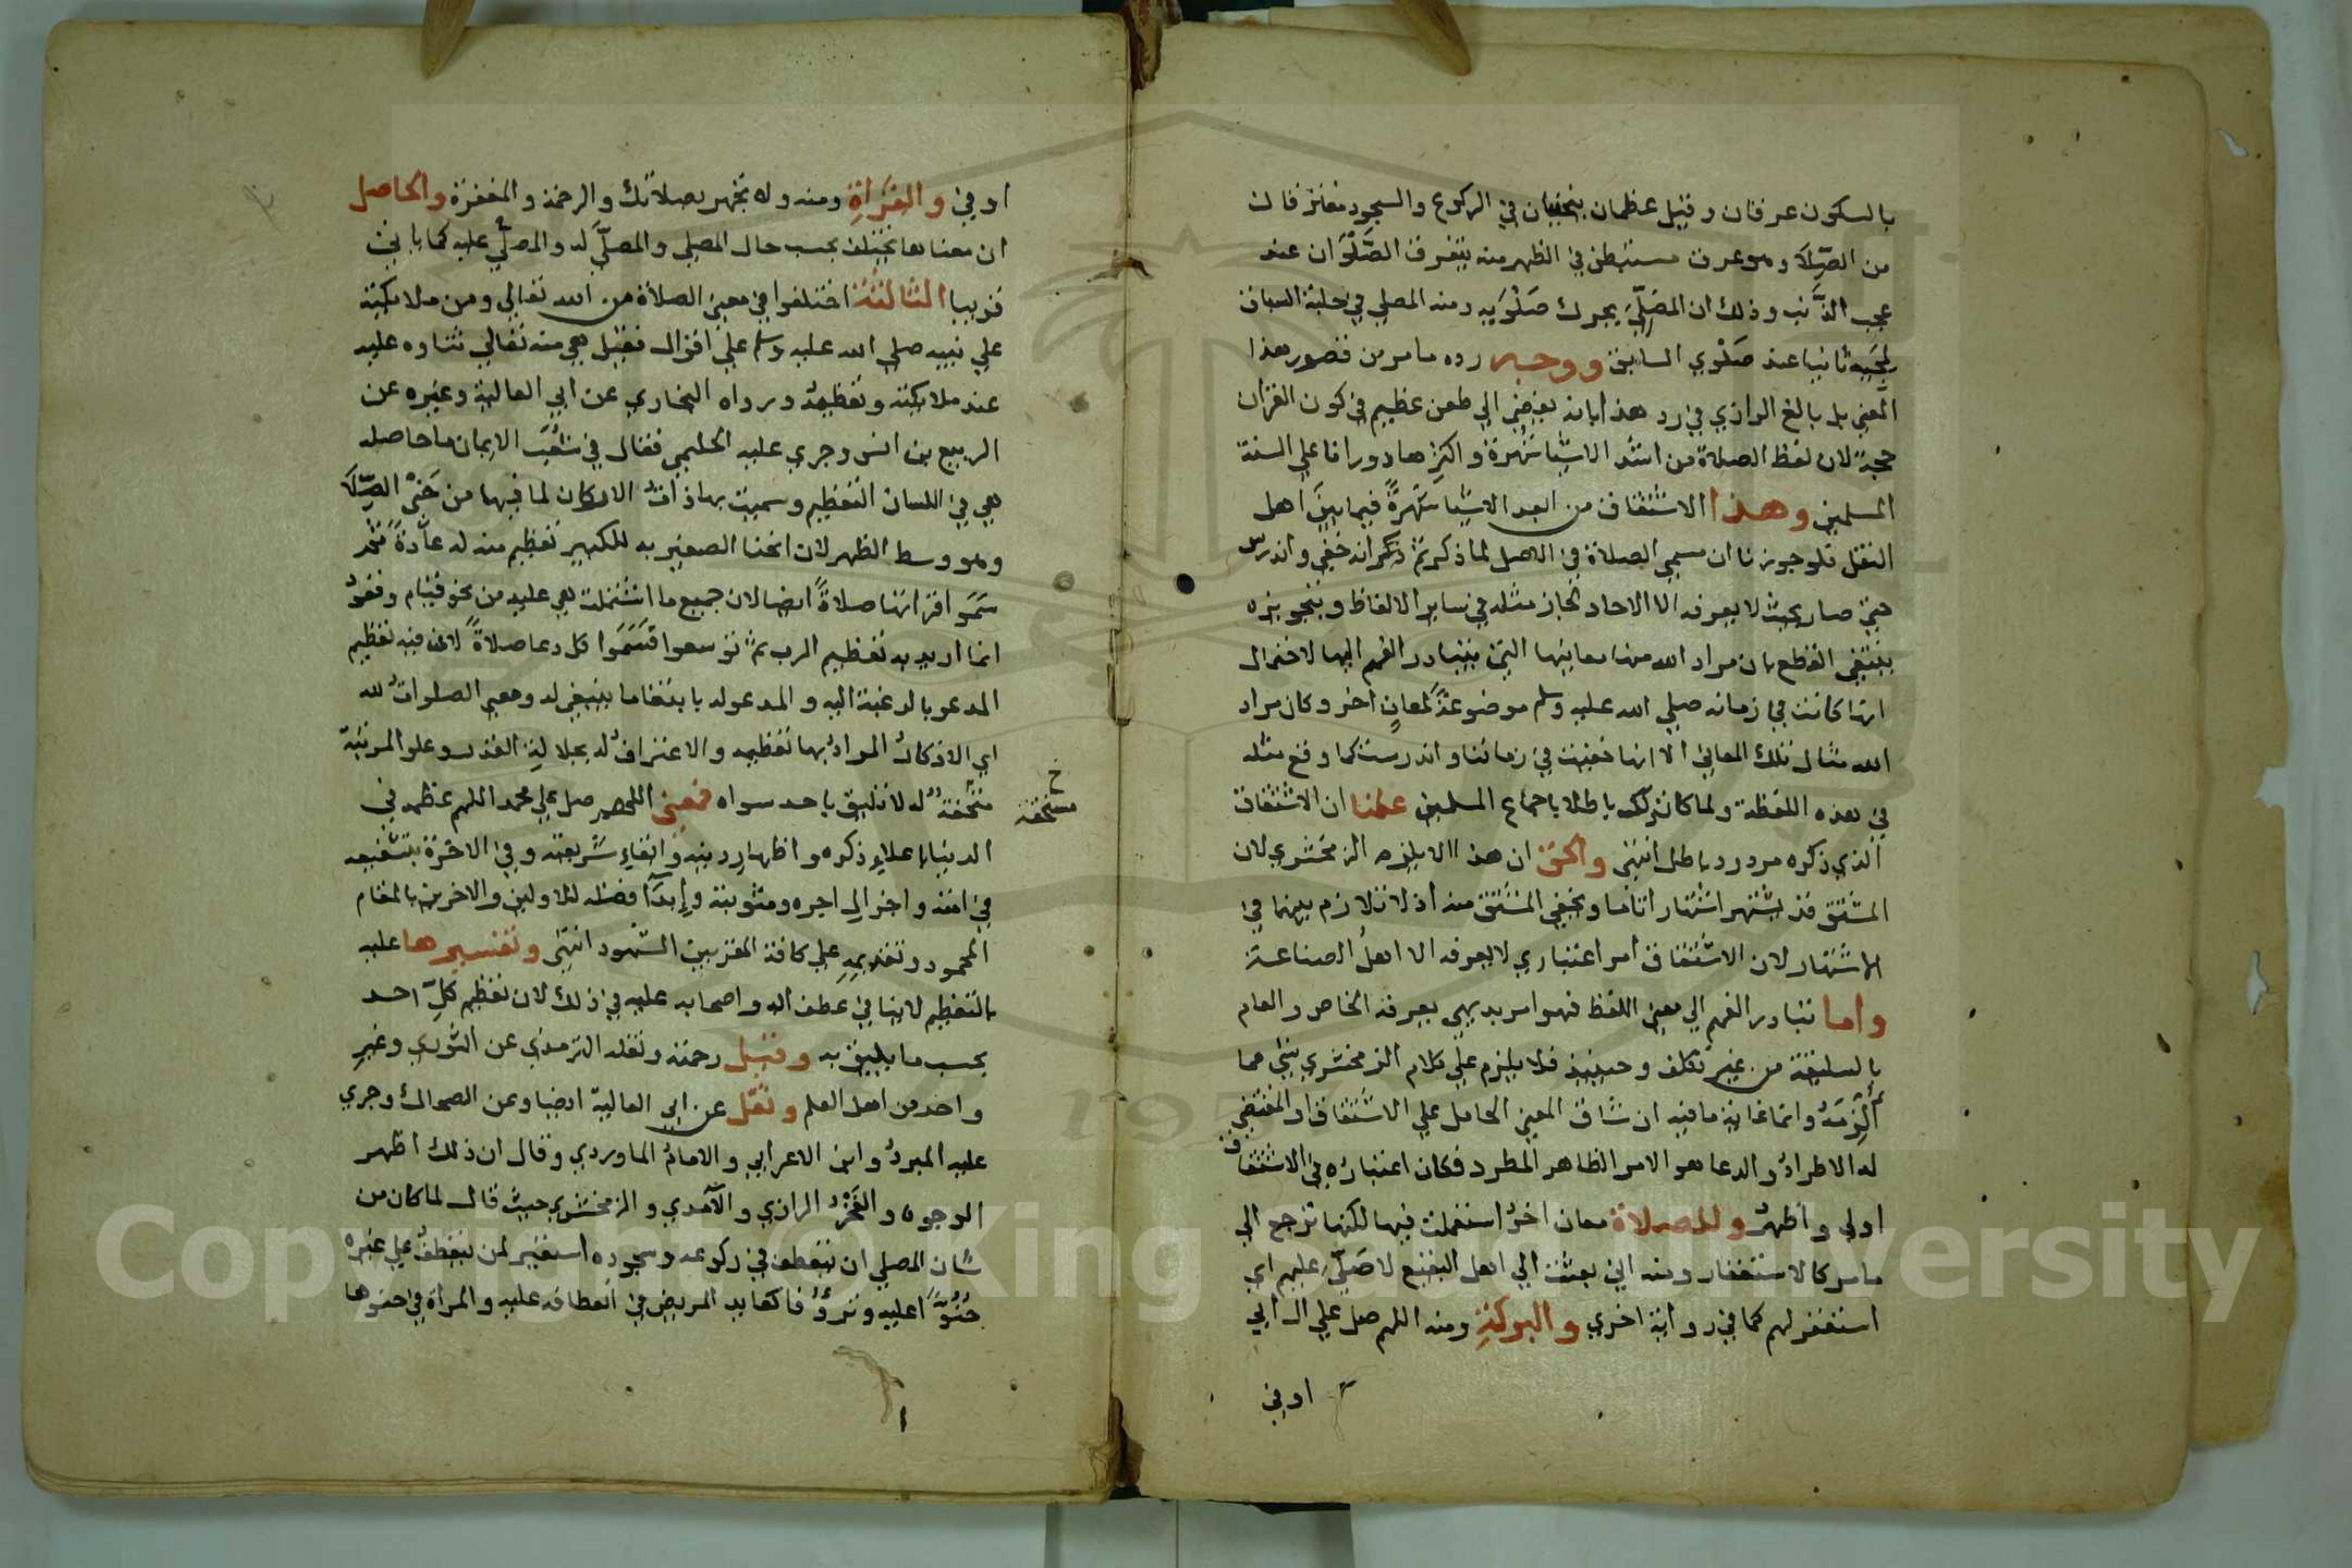 بالسكون عرفان وقيل عظمان ينحنيان في الركوع والسجود مفترقان
من الصّلَا وهو عرق مستبطن في الظهر منه يتفرق الصَّلَوَان عند
عجب الذَّنَب وذلك ان المصَلّي يحرك صَلْوَيه ومنه المصلي في حلبة السباق
لمجيه ثانيا عند صَلْوَي السابق ووجه رده ما مر من قصور هذا
المعنى بل بالغ الرازي في رد هذا بانه يفضي الي طعن عظيم في كون القران
حجة لان لفظ الصلاة من اشد الاشيا شهرة واكثرها دورانا على السنة
المسلمين وهذا الاشتقاق من ابعد الاشيا شهرةً فيما بين اهل
النقل فلو جوزنا ان مسمي الصلاة في الاصل لما ذكر ثم ذكر انه خفي واندرس
حتي صار بحيث لا يعرفه الا الاحاد لجاز مثله في ساير الالفاظ وبتجويزه
ينتفي القطع بان مراد الله منها معانيها التي يتبادر الفهم اليها لاحتمال
انها كانت في زمانه صلي الله عليه وسلم موضوعةً لمعانٍ اخر وكان مراد
الله تعالى تلك المعاني الا انها خفيت في زماننا واندرست كما وقع مثله
في هذه اللفظة ولما كان ذلك باطلا باجماع المسلمين علمنا ان الاشتقاق
الذي ذكره مردود باطل انتهى والحق ان هذا الا يلزم الزمخشري لان
المشتق قد يشتهر اشتهارا تاما ويخفي المشتق منه اذ لا تلازم بينهما في
الاشتهار لان الاشتقاق امر اعتباري لا يعرفه الا اهل الصناعة
واما تبادر الفهم الي معنى اللفظ فهو امر بديهي يعرفه الخاص والعام
بالسليقة من غير تكلف وحينيذ فلا يلزم علي كلام الزمخشري شي مما
أُلْزِمَهُ وانما غايته ما فيه ان شاق المعنى الحامل علي الاشتقاق او المقتضي
له الاطراد والدعا هو الامر الظاهر المطرد فكان اعتباره في الاشتقاق
اولي واظهر وللصلاة معان اخر استعملت فيها لكنها ترجع الي
ما مر كالاستغفار ومنه اني بعثت الي اهل البقيع لاصَلِّيَ عليهم اي
استغفر لهم كما في رواية اخري والبركة ومنه اللهم صل علي ال ابي
اوفي
اوفي والقراة ومنه ولا تجهر بصلاتك والرحمة والمغفرة والحاصل
ان معناها يختلف بحسب حال المصلي والمصلَّي له والمصلَّي عليه كما ياتي
قريبا الثالثة اختلفوا في معنى الصلاة من الله تعالي ومن ملايكته
علي نبيه صلي الله عليه وسلم علي اقوال فقيل هي منه تعالي ثناوه عليه
عند ملايكته وتعظيمه ورواه البخاري عن ابي العالية وغيره عن
الربيع بن انس وجري عليه الحليمي فقال في شُعَب الايمان ما حاصله
هي في اللسان التعظيم وسميت بها ذات الاركان لما فيها من حَنْي الصّلَا
وهو وسط الظهر لان انحنا الصغير به للكبير تعظيم منه له عادةً ثم
سَمَّوا قراتها صلاةً ايضا لان جميع ما اشتملت هي عليه من نحو قيام وقعود
انما اريد به تعظيم الرب ثم توسعوا فَسَمَّوا كل دعا صلاةً لان فيه تعظيم
المدعو بالرغبة اليه والمدعو له بابتغا ما ينبغي له ومعنى الصلوات لله
اي الاذكار المراد بها تعظيمه والاعتراف له بجلالة القدر وعلو المرتبة
متحقة له لا تليق باحد سواه فمعنى اللهم صل علي محمد اللهم عظمه في
خ مستحقة
الدنيا باعلاء ذكره واظهار دينه وابقاء شريعته وفي الاخرة بتشفيعه
في امته واجزال اجره ومثوبته وإبدَا فضله للاولين والاخرين بالمقام
المحمود وتقديمه علي كافة المقربين الشهود انتهى وتفسيرها عليه
بالتعظيم لا ينافي عطف اله واصحابه عليه في ذلك لان تعظيم كلِّ احد
بحسب ما يليق به وقيل رحمته ونقله الترمذي عن الثوري وغير
واحد من اهل العلم ونقل عن ابي العالية ايضا وعن الضحاك وجري
عليه المبرد وابن الاعرابي والامام الماوردي وقال ان ذلك اظهر
الوجوه والفخر الرازي والآمدي والزمخشري حيث قال لما كان من
شان المصلي ان ينعطف في ركوعه وسجوده استعير لمن ينعطف علي غيره
حُنُوًّا عليه وترؤفا كعايد المريض في انعطافه عليه والمراة في حنوها